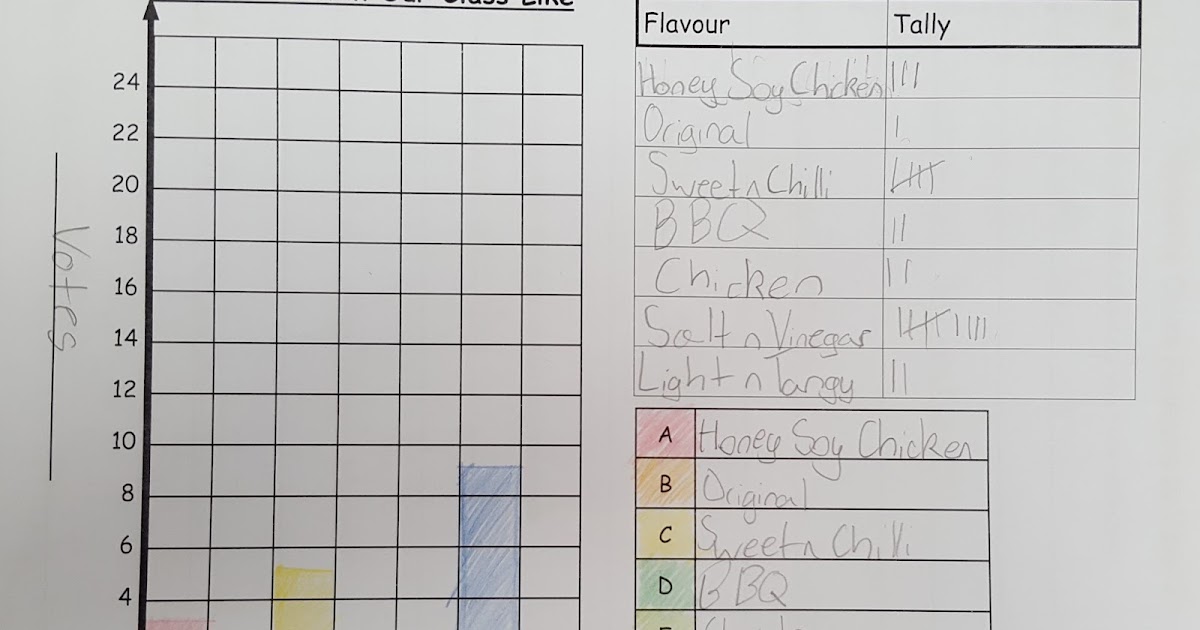 Our Class Like
24
22
20
18
16
14
12
10
8
6
4
Votes
Flavour Tally
Honey Soy Chicken |||
Original |
Sweet n Chilli ||||
BBQ ||
Chicken ||
Salt n Vinegar |||| ||||
Light n Tangy ||
A Honey Soy Chicken
B Original
C Sweet n Chilli
D BBQ